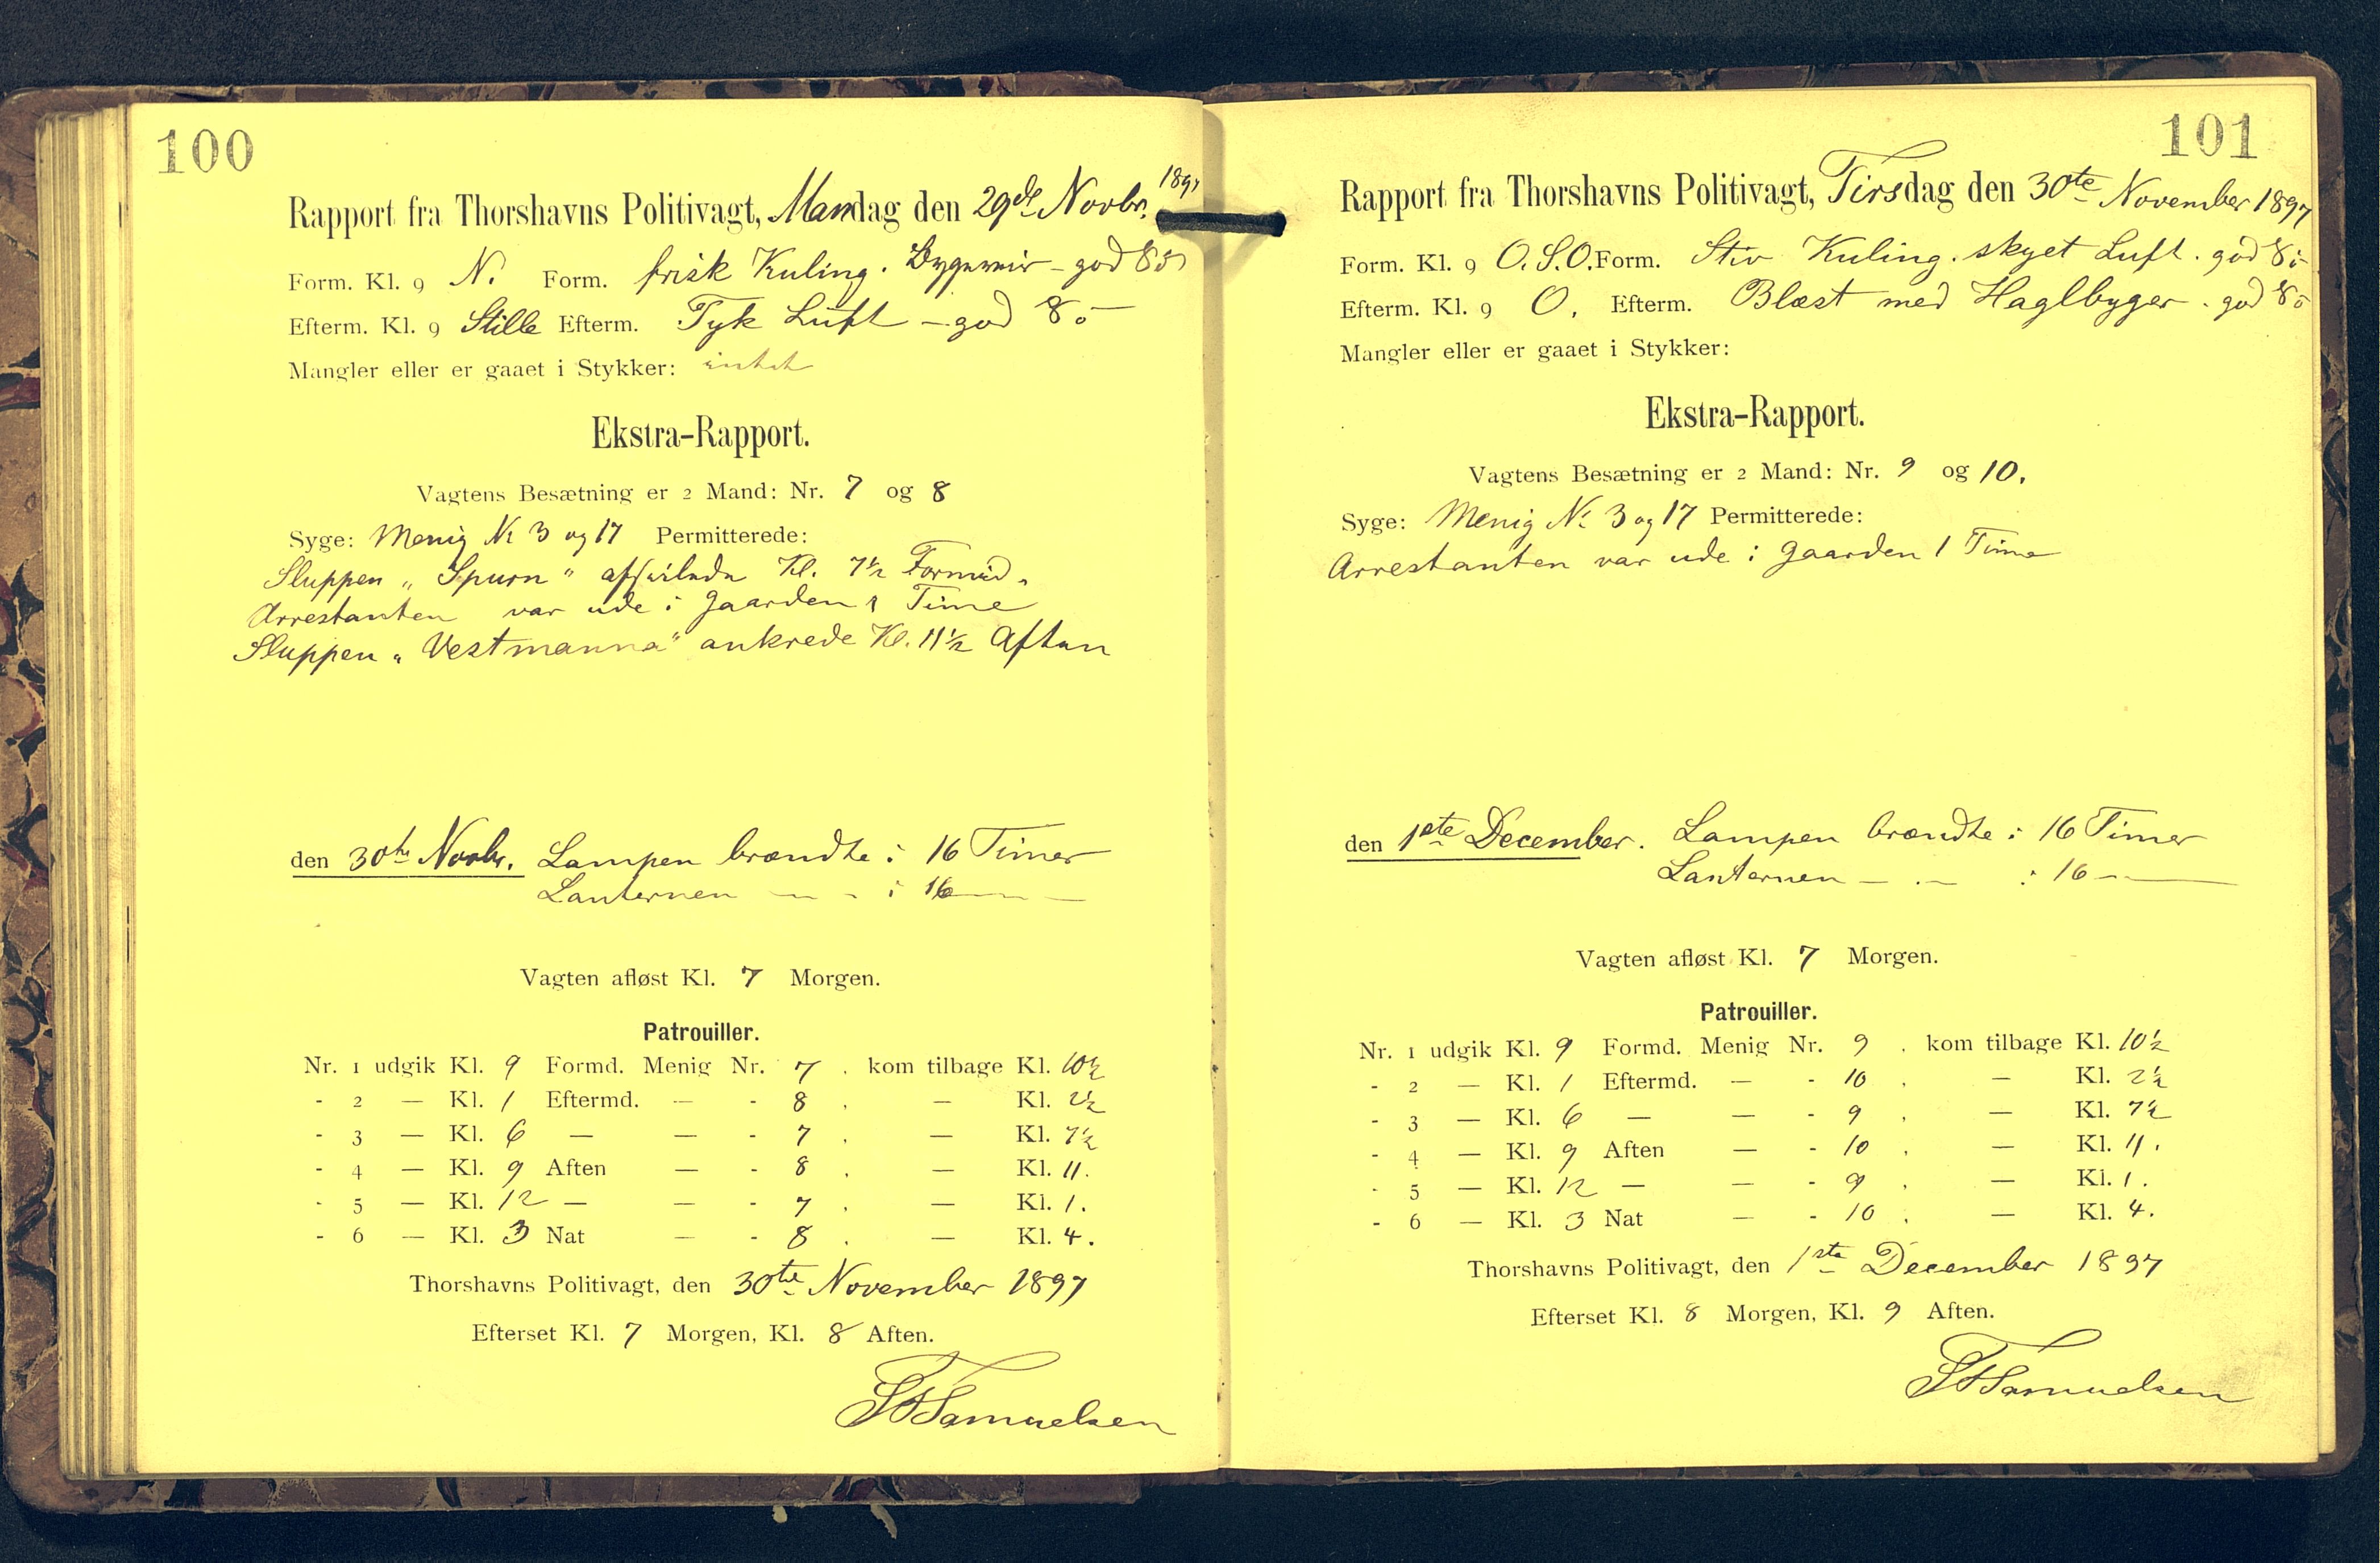 100
Rapport fra Thorshavns Politivagt, Mandag den 29de Novbr. 1897
Form. Kl. 9 N. Form. frisk Kuling. Bygeveir - god Sö
Efterm. Kl. 9 Stille Efterm. Tyk Luft - god Sö
Mangler eller er gaaet i Stykker: intet
Ekstra-Rapport.
Vagtens Besætning er 2 Mand: Nr. 7 og 8
Syge: Menig Nr 3 og 17 Permitterede:
Sluppen „Spurn“ afseilede Kl. 7½ Formid.
Arrestanten var ude i Gaarden 1 Time
Sluppen „Vestmanna“ ankrede Kl. 11½ Aften
den 30te Novbr. Lampen brændte i 16 Timer
Lanternen — - i 16 — —
Vagten afløst Kl. 7 Morgen.
Patrouiller.
Nr. 1 udgik Kl. 9 Formd. Menig Nr. 7 . kom tilbage Kl. 10½
- 2 — Kl. 1 Eftermd. — - 8 . — Kl. 2½
- 3 — Kl. 6 — — - 7 . — Kl. 7½
- 4 — Kl. 9 Aften — - 8 . — Kl. 11.
- 5 — Kl. 12 — — - 7 . — Kl. 1.
- 6 — Kl. 3 Nat — - 8 . — Kl. 4.
Thorshavns Politivagt, den 30te November 1897
Efterset Kl. 7 Morgen, Kl. 8 Aften.
Samuelsen
101
Rapport fra Thorshavns Politivagt, Tirsdag den 30te November 1897
Form. Kl. 9 O.S.O. Form. Stiv Kuling. skyet Luft. god Sö
Efterm. Kl. 9 O. Efterm. Blæst med Haglbyger. god Sö
Mangler eller er gaaet i Stykker:
Ekstra-Rapport.
Vagtens Besætning er 2 Mand: Nr. 9 og 10.
Syge: Menig Nr 3 og 17 Permitterede:
Arrestanten var ude i Gaarden 1 Time
den 1ste December. Lampen brændte i 16 Timer
Lanternen — - — i 16 - —
Vagten afløst Kl. 7 Morgen.
Patrouiller.
Nr. 1 udgik Kl. 9 Formd. Menig Nr. 9 . kom tilbage Kl. 10½
- 2 — Kl. 1 Eftermd. — - 10 . — Kl. 2½
- 3 — Kl. 6 — — - 9 . — Kl. 7½
- 4 — Kl. 9 Aften — - 10 . — Kl. 11.
- 5 — Kl. 12 — — - 9 . — Kl. 1.
- 6 — Kl. 3 Nat — - 10 . — Kl. 4.
Thorshavns Politivagt, den 1ste December 1897
Efterset Kl. 8 Morgen, Kl. 9 Aften.
Samuelsen